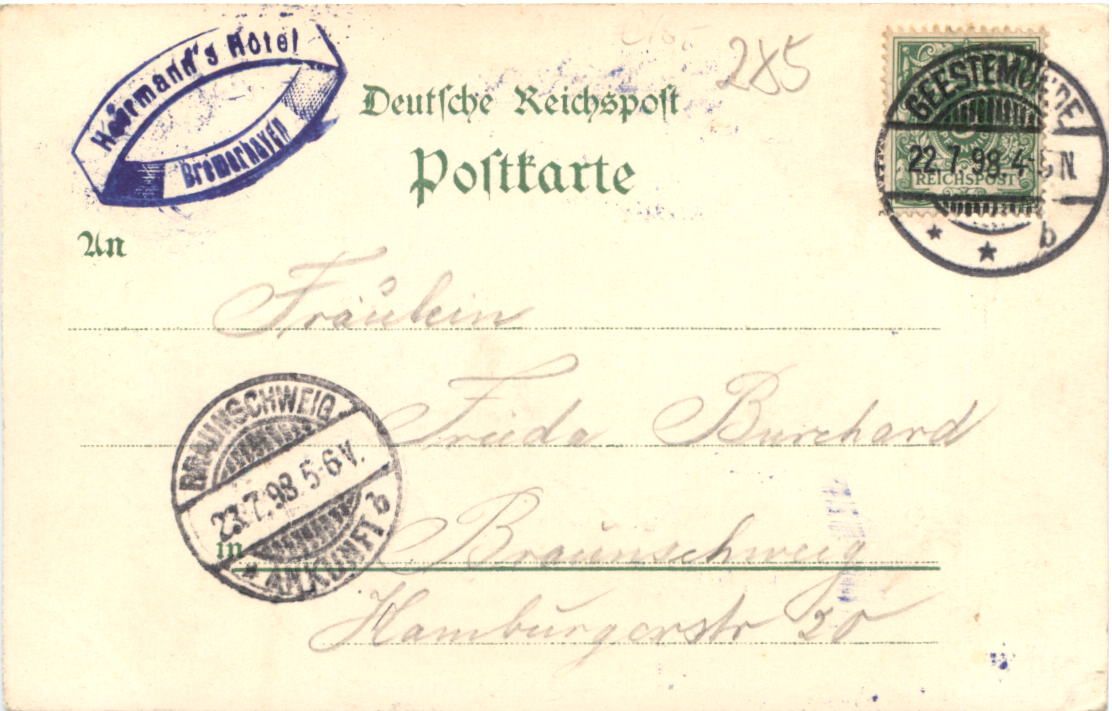 Heermann's Hotel
Bremerhaven
285
Deutsche Reichspost
Postkarte
GEESTEMÜNDE
22.7.98.4-5N
REICHSPOST
b
An
Fräulein
Frieda Burchard
BRAUNSCHWEIG
23.7.98.5-6V.
ANKUNFT
b
in Braunschweig
Hamburgerstr 20